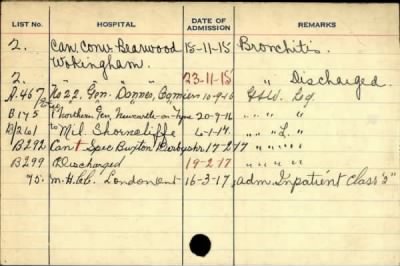 LIST NO. HOSPITAL DATE OF ADMISSION REMARKS
2. Can. Conv. Bearwood 18-11-15 Bronchitis.
Wokingham.
2. " " 23-11-15 " Discharged.
A.467 No 22. Gen. Dannes, Camiers 10-9-16 G.S.W. Leg
B175 1 Northern Gen. Newcastle-on-Tyne 20-9-16 " " "
B/261 to Mil. Shorncliffe 6-1-17. " " L. "
B292 Can Spec Buxton Derbyshr. 17-2-17 " " " "
B299 Discharged 19-2-17 " " " "
75. M.H. London Ont 16-3-17 adm. Inpatient Class "2"